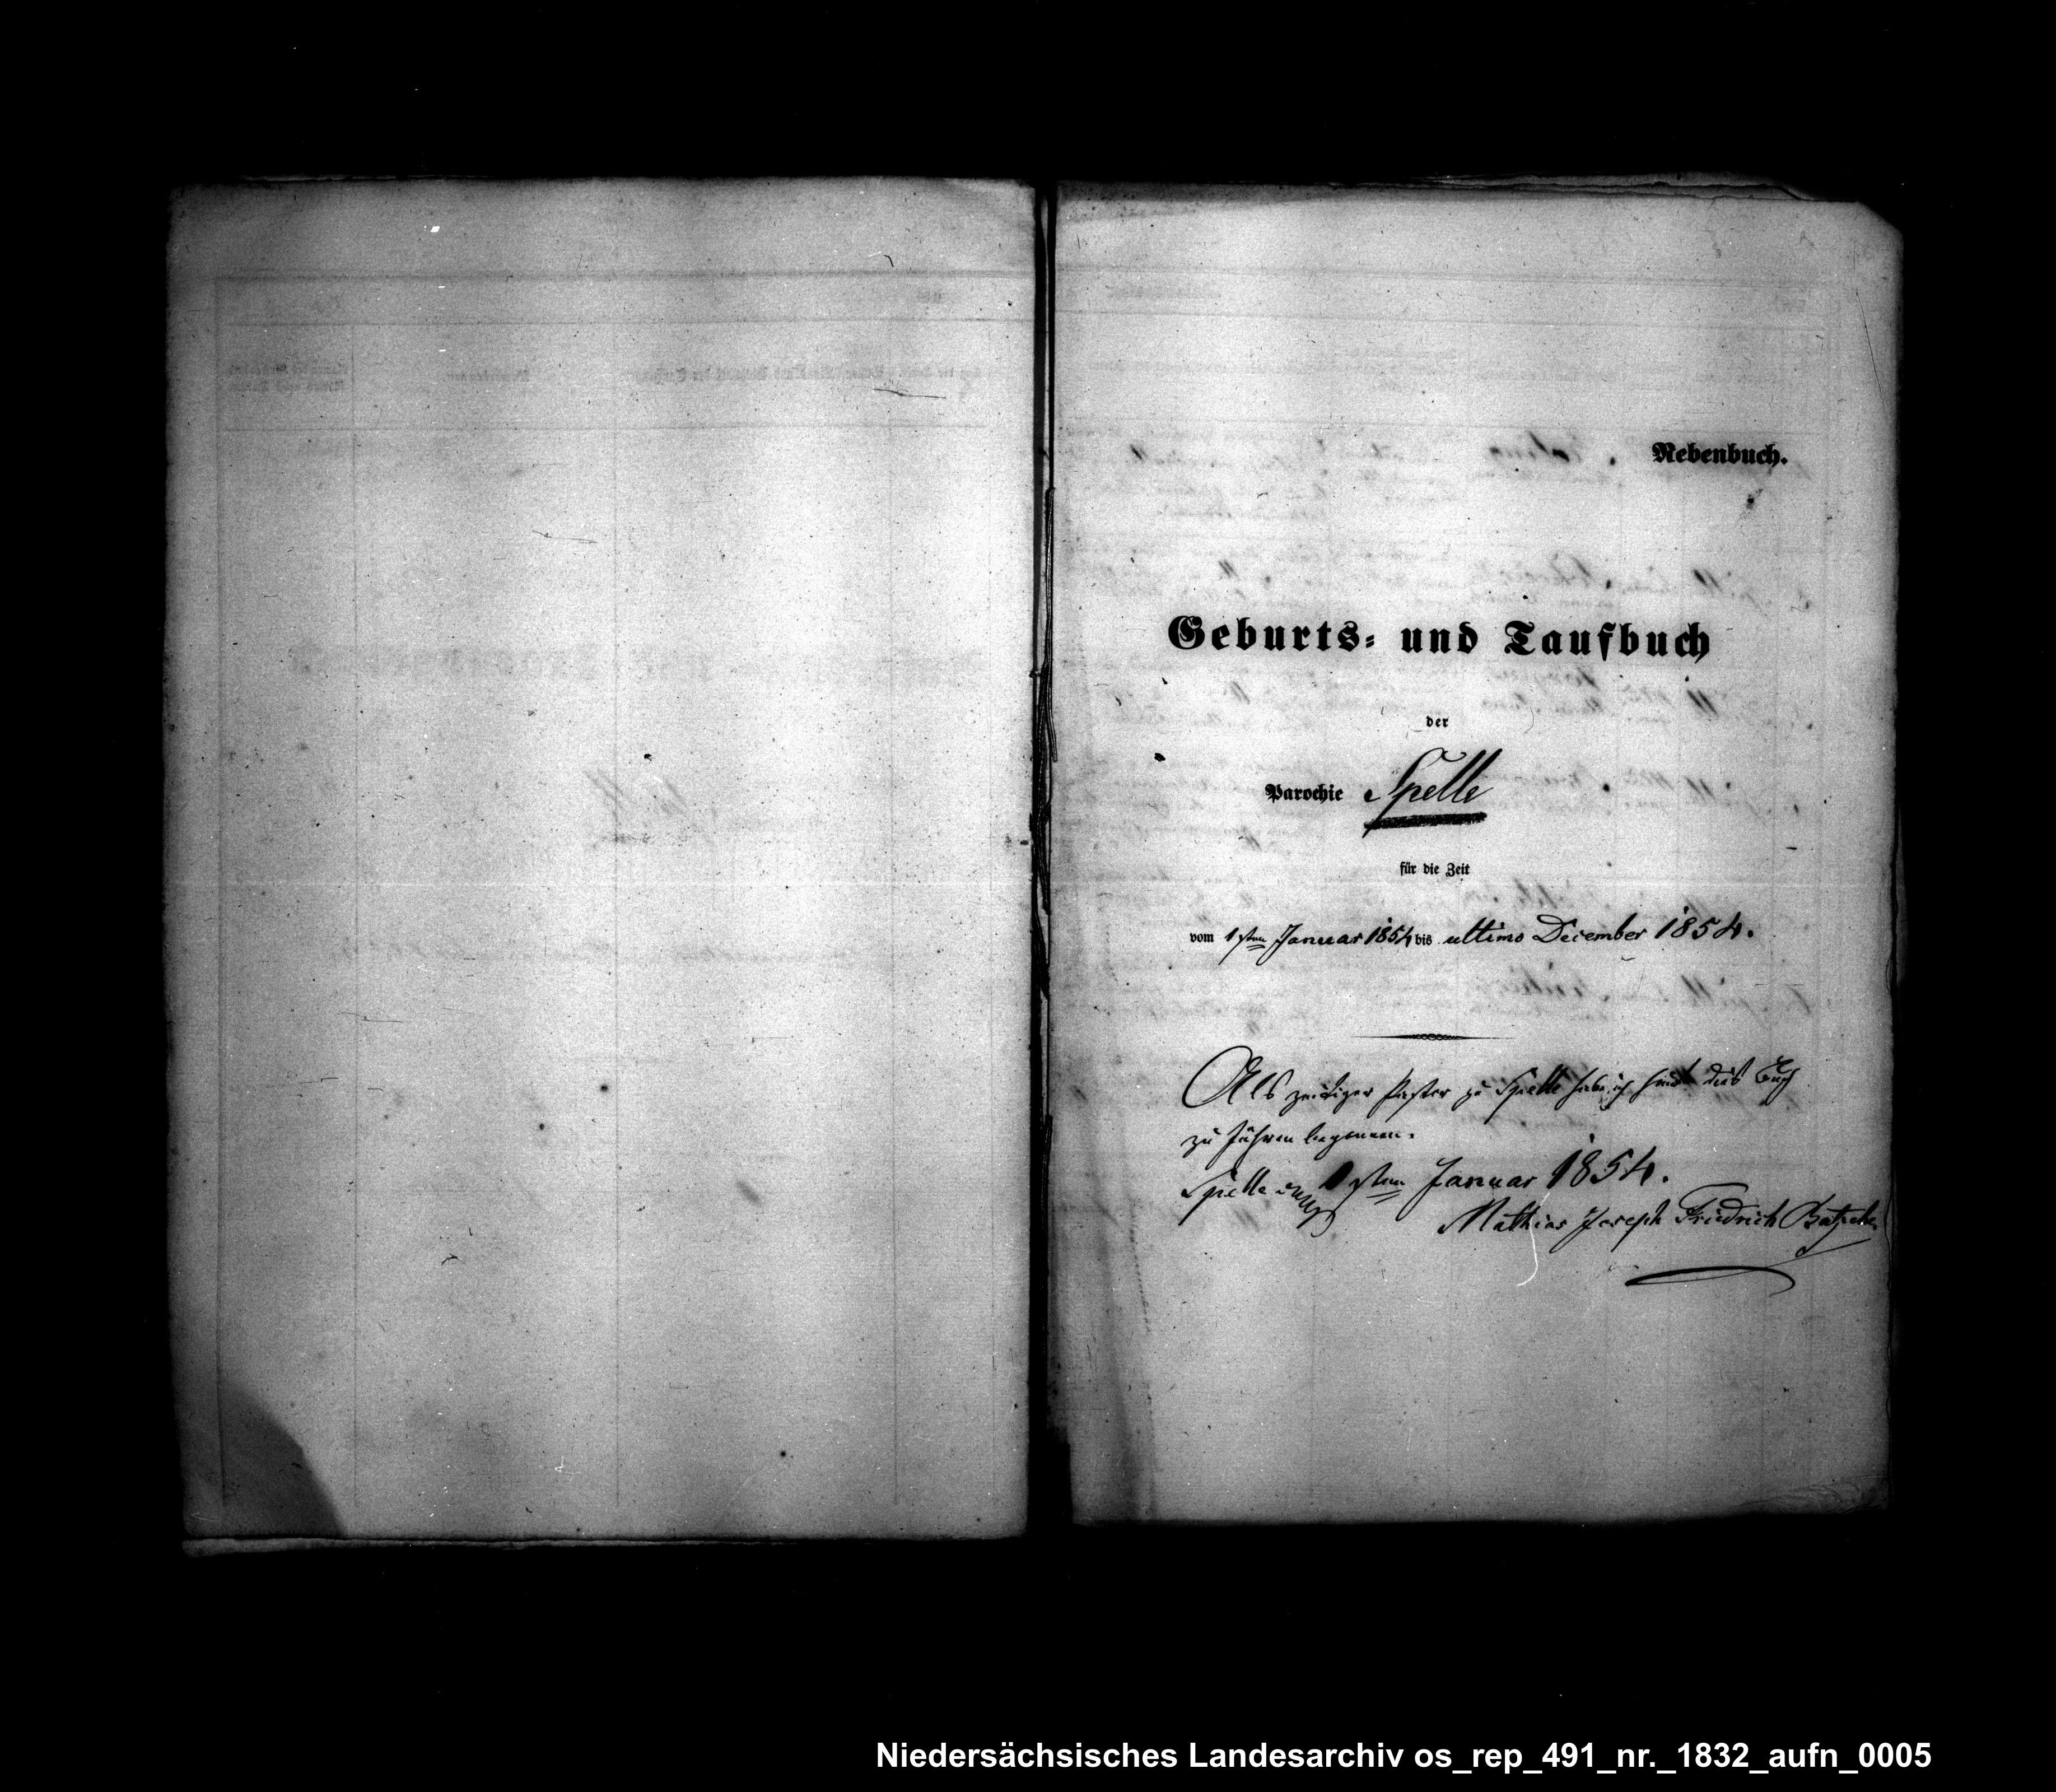 Nebenbuch.
Geburts- und Taufbuch
der
Parochie Spelle
für die Zeit
vom 1sten Januar 1854 bis ultimo December 1854.
Als zeitiger Pastor zu Spelle habe ich heute dies Buch
zu führen begonnen.
Spelle den 1sten Januar 1854.
Mathias Joseph Friedrich
Niedersächsisches Landesarchiv os_rep_491_nr._1832_aufn_0005